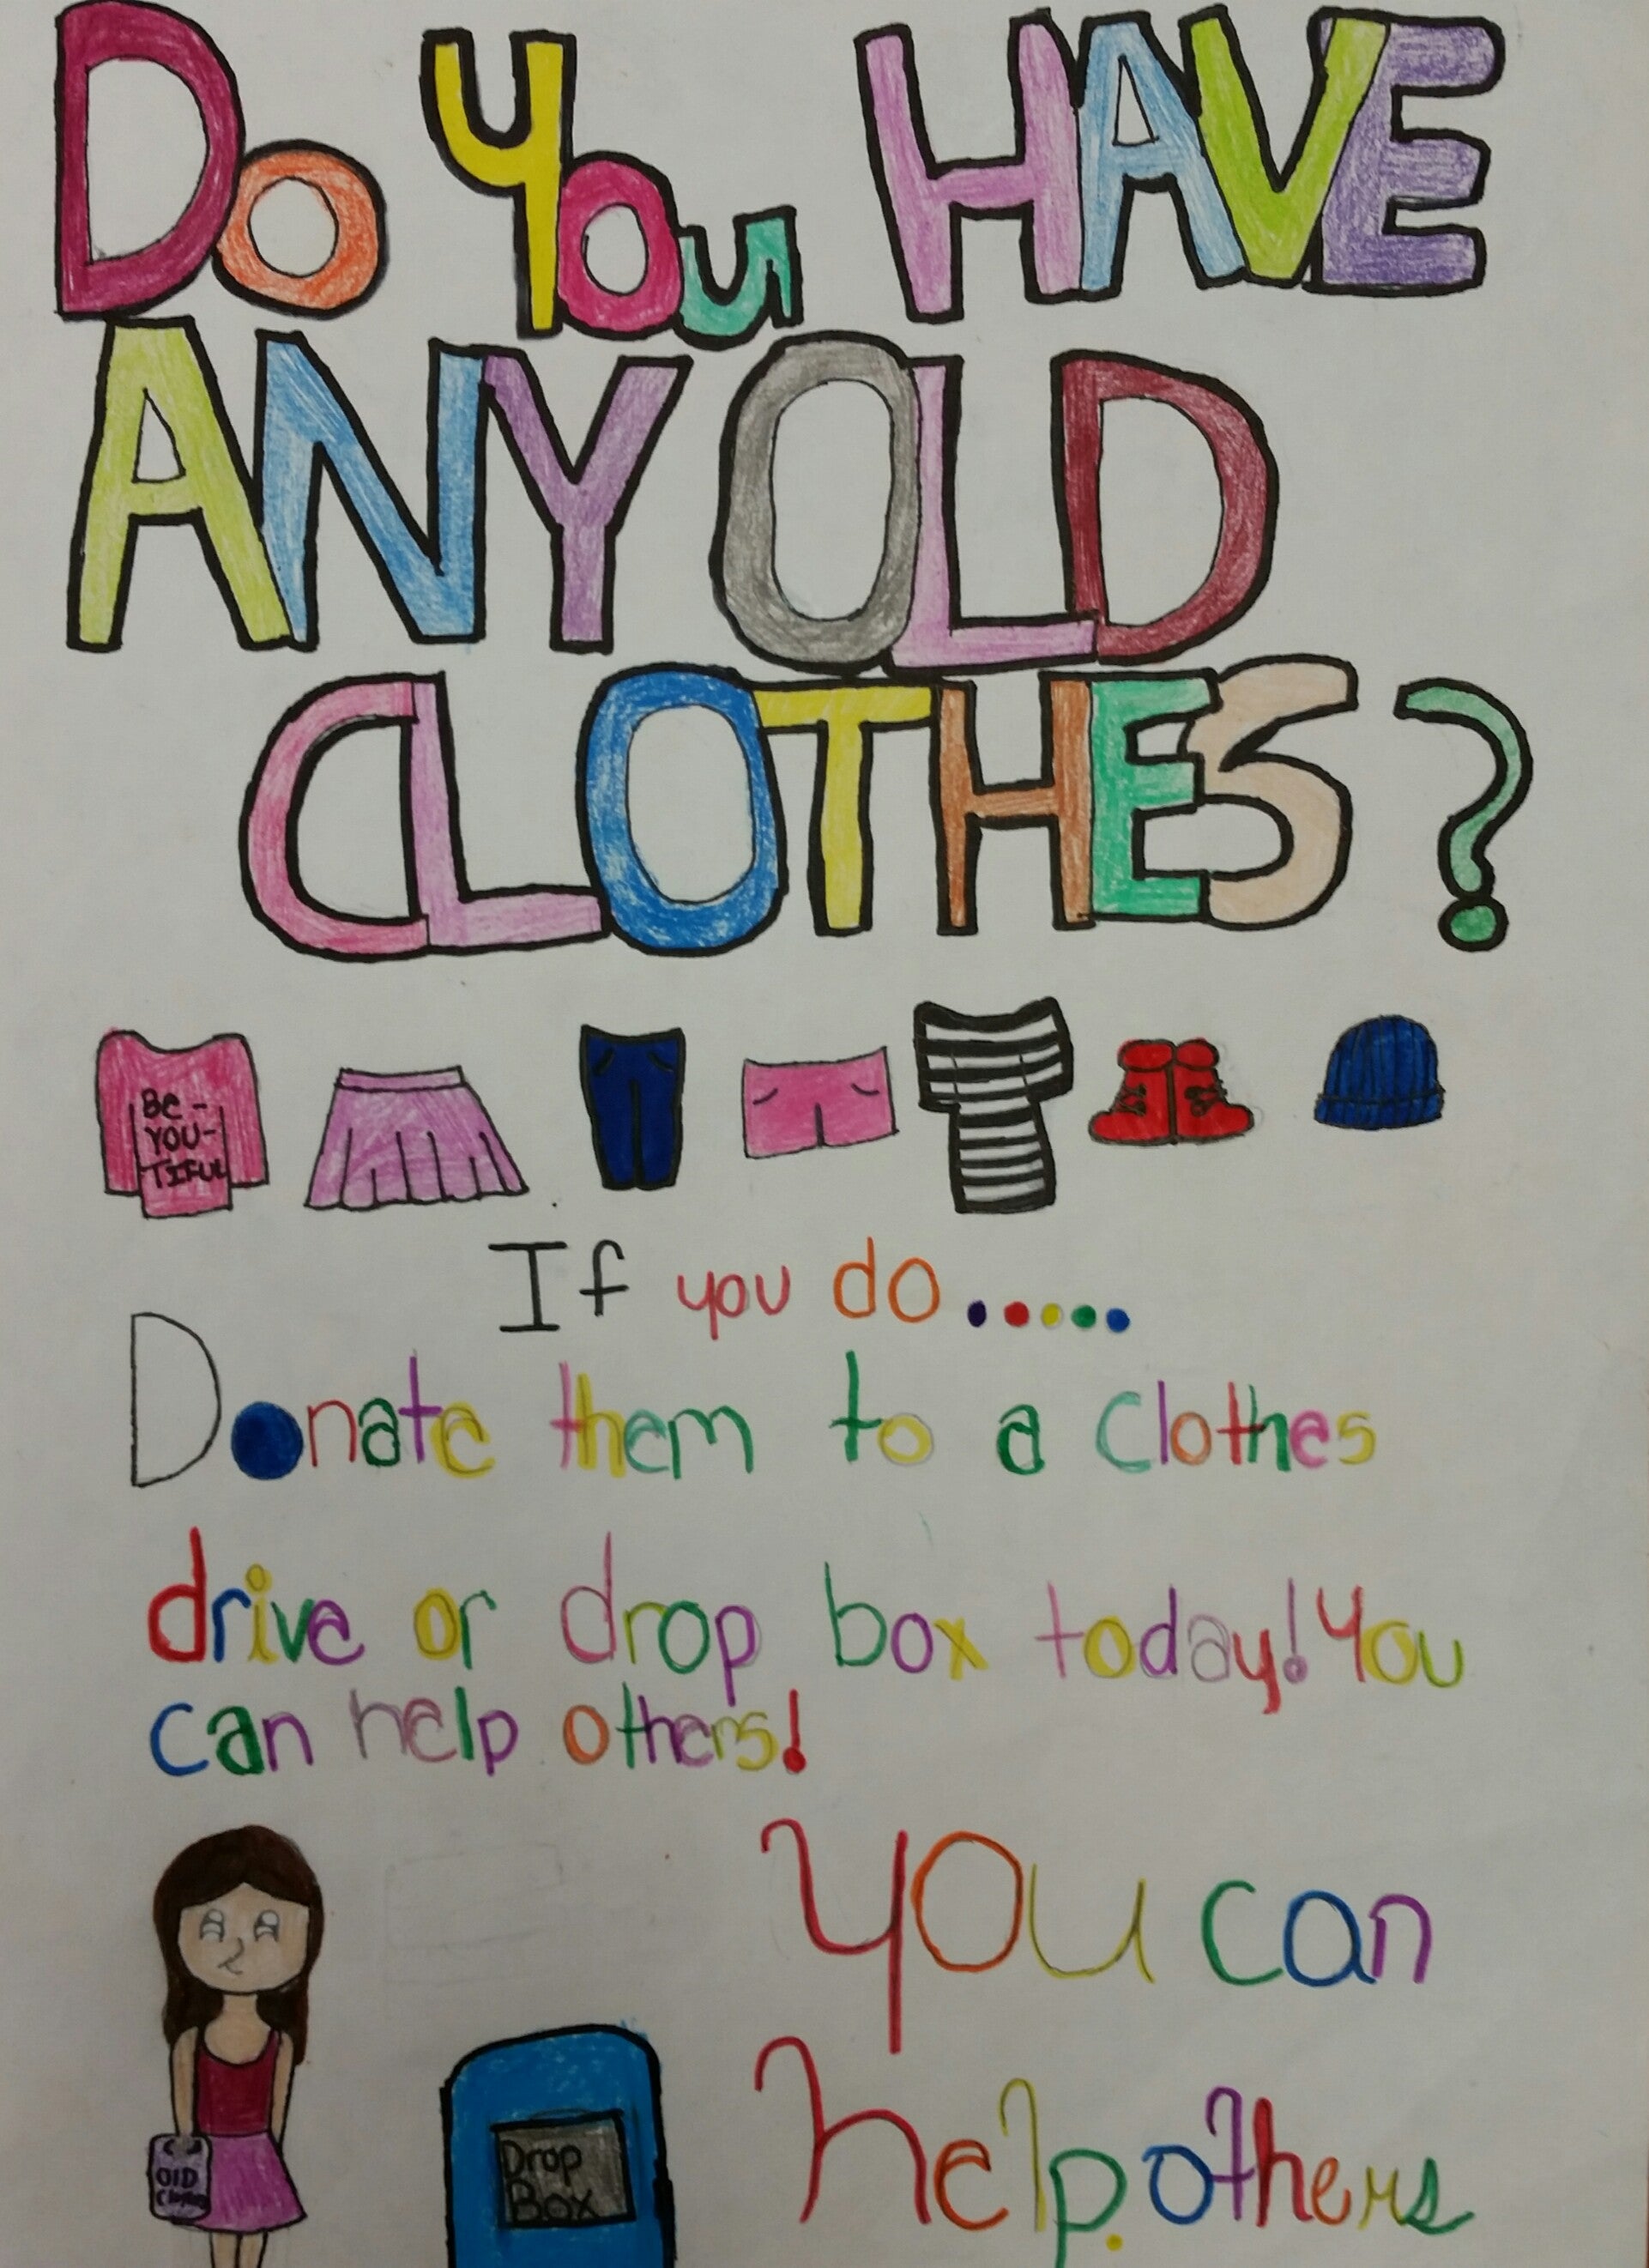 Do You HAVE
ANY OLD
CLOTHES?
Be-
YOU-
TIFUL
If you do.....
Donate them to a clothes
drive or drop box today! You
can help others!
you can
help others
OlD
Drop
Box